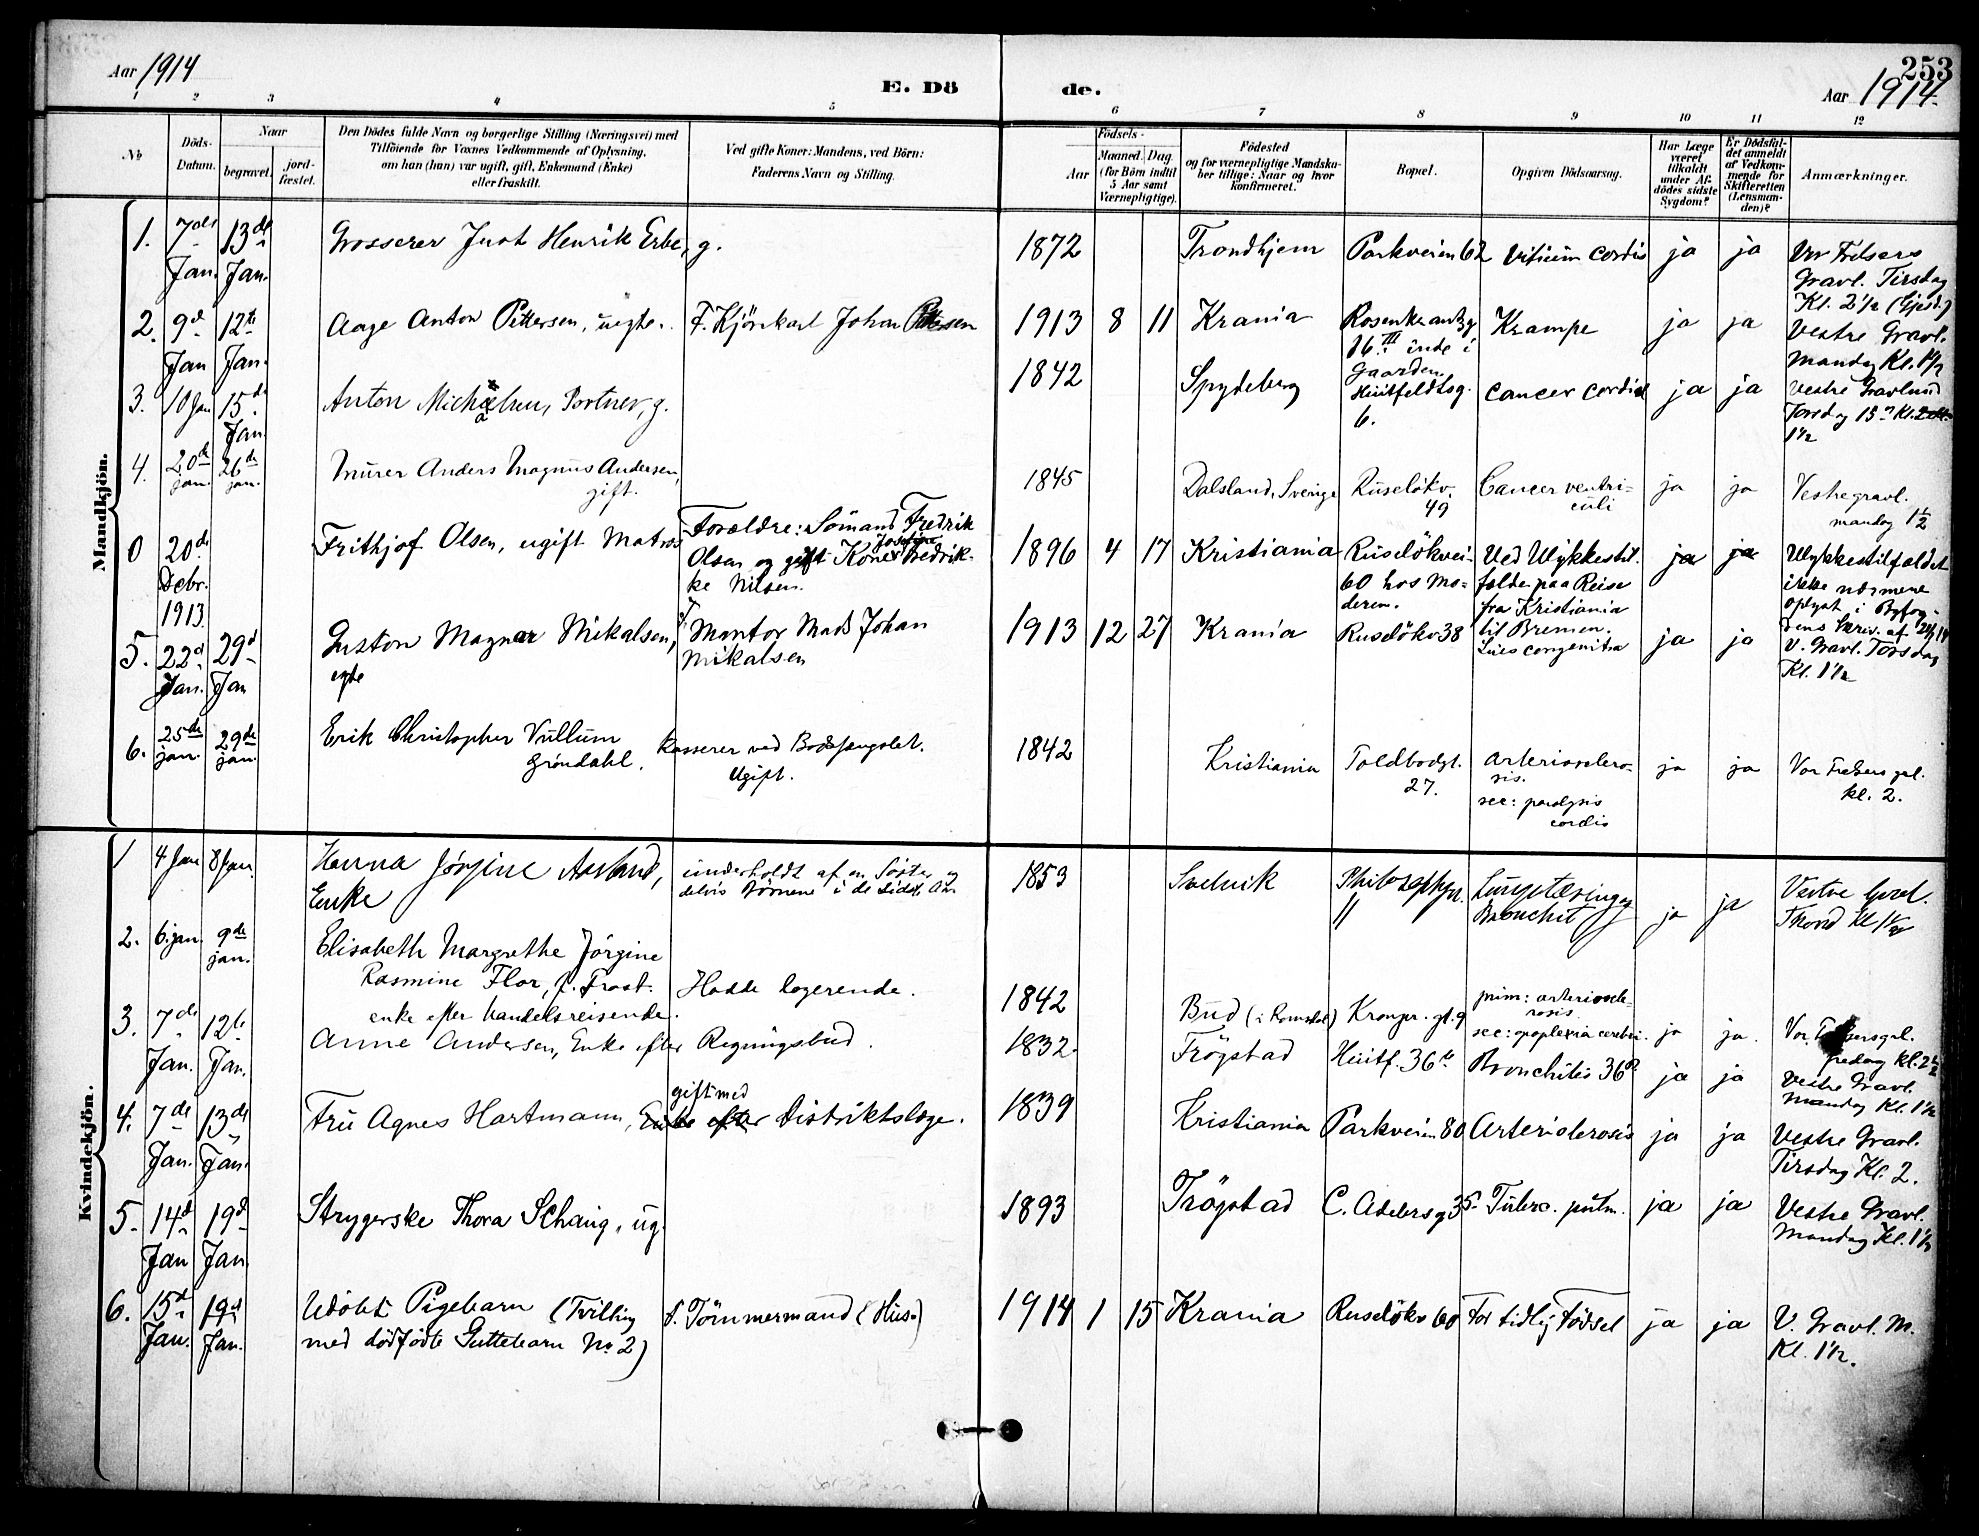 Aar 1914
E. Dö de.
253
Aar 1914
1 2 3 4 5 6 7 8 9 10 11 12
No
Döds-Datum.
Naar
begravet.
jord-fæstet.
Den Dödes fulde Navn og borgerlige Stilling (Næringsvei) med
Tilföiende for Voxnes Vedkommende af Oplysning,
om han (hun) var ugift, gift, Enkemand (Enke)
eller fraskilt.
Ved gifte Koner: Mandens, ved Börn:
Faderens Navn og Stilling.
Födsels-
Aar
Maaned. Dag.
(for Börn indtil
5 Aar samt
Værnepligtige).
Födested
og for værnepligtige Mandska-
ber tillige: Naar og hvor
konfirmeret.
Bopæl.
Opgiven Dödsaarsag.
Har Læge
været
tilkaldt
under Af-
dödes sidste
Sygdom?
Er Dödsfal-
det anmeldt
af Vedkom-
mende for
Skifteretten
(Lensman-
den)?
Anmærkninger.
Mandkjön.
1. 7de Jan. 13de Jan. Grosserer Just Henrik Erbe, g. 1872 Trondhjem Parkveien 62 Vitium cordis ja ja Vor Frelsers
Gravl. Tirsdag
Kl. 2 1/2 (Gjesd.)
2. 9d Jan 12te Jan. Aage Anton Pettersen, uegte. F. Kjörekarl Johan Pettersen 1913 8 11 Krania Rosenkrantzg
16 III inde i
Gaarden. Krampe ja ja Vestre Gravl.
Mandag Kl. 1 1/2
3. 10 Jan 15de Jan. Anton Michaelsen, Portner, g. 1842 Spydeberg Huitfeldtsg.
6. Cancer cordia ja ja Vestre Gravlund
Torsdag 15de Kl.
1 1/2
4. 20de jan. 26de jan. Murer Anders Magnus Andersen,
gift. 1845 Dalsland, Sverige Ruselökv.
49 Cancer ventri-
culi ja ja Vestre gravl.
mandag 1 1/2
0 20de Debr. 1913 Frithjof Olsen, ugift Matros Forældre: Sömand Fredrik
Olsen og gift Kone Josefine Fredrik-
ke Nilsen. 1896 4 17 Kristiania Ruselökvei
60 hos Mo-
deren. Ved Ulykkestil-
fælde paa Reise
fra Kristiania
til Bremen. ja ja Ulykkestilfældet
ikke nærmere
oplyst i Byfog-
dens Skriv. af
5. 22d Jan. 29d Jan Gustav Magnar Mikalsen,
egte F. Montör Mads Johan
Mikalsen 1913 12 27 Krania Ruselökv 38 Lues congenita ja ja V. Gravl. Torsdag
Kl. 1 1/2
6. 25de jan. 29de jan. Erik Christopher Vullum
Gröndahl. Kasserer ved Bodsfængslet.
Ugift. 1842 Kristiania Toldbodgt.
27. Arteriosclero-
sis.
sec: paralysis
cordis ja ja Vor Frelsers grl.
kl. 2.
Kvindekjön.
1 4 Jan 8 Jan. Hanna Jørgine Aasland,
Enke underholdt af en Søster og
delvis Børnene i de sidste Aar 1853 Svelvik Philosophgn.
11 Lungetæring og
Bronchit ja ja Vestre Gravl.
Thorsd Kl 1 1/2
2. 6. jan. 9de jan. Elisabeth Margrethe Jörgine
Rasmine Flor, f. Frost.
enke efter handelsreisende. Hadde logerende. 1842 Bud (i Romsdal) Kronpr. gt. 9 prim: arterioscle-
rosis.
sec: apoplexia cerebri. ja ja. Vor Frelsersgrl.
fredag kl. 2 1/2
3. 7de Jan. 12te Jan. Anne Andersen, Enke efter Regningsbud. 1832. Trögstad Huitf. 36 Bronchitis ja ja Vestre Gravl.
Mandag Kl. 1 1/2
4. 7de Jan. 13de Jan. Fru Agnes Hartmann, Enke efter gift med Distriktslæge. 1839 Kristiania Parkveien 80 Arteriolerosis ja ja Vestre Gravl.
Tirsdag Kl. 2.
5. 14d Jan 19d Jan. Strygerske Thora Schaug, ug. 1893 Trögstad C. Adelersg 35. Tuberc. pulm. ja ja Vestre Gravl.
Mandag Kl. 1 1/2
6. 15d Jan. 19d Jan. Udöbt Pigebarn (Tvilling
med dödfödte Guttebarn No. 2) F. Tömmermand (Hus.) 1914 1 15 Krania Ruselökv 60 For tidlig Födsel ja ja V. Gravl. M.
Kl. 1 1/2.